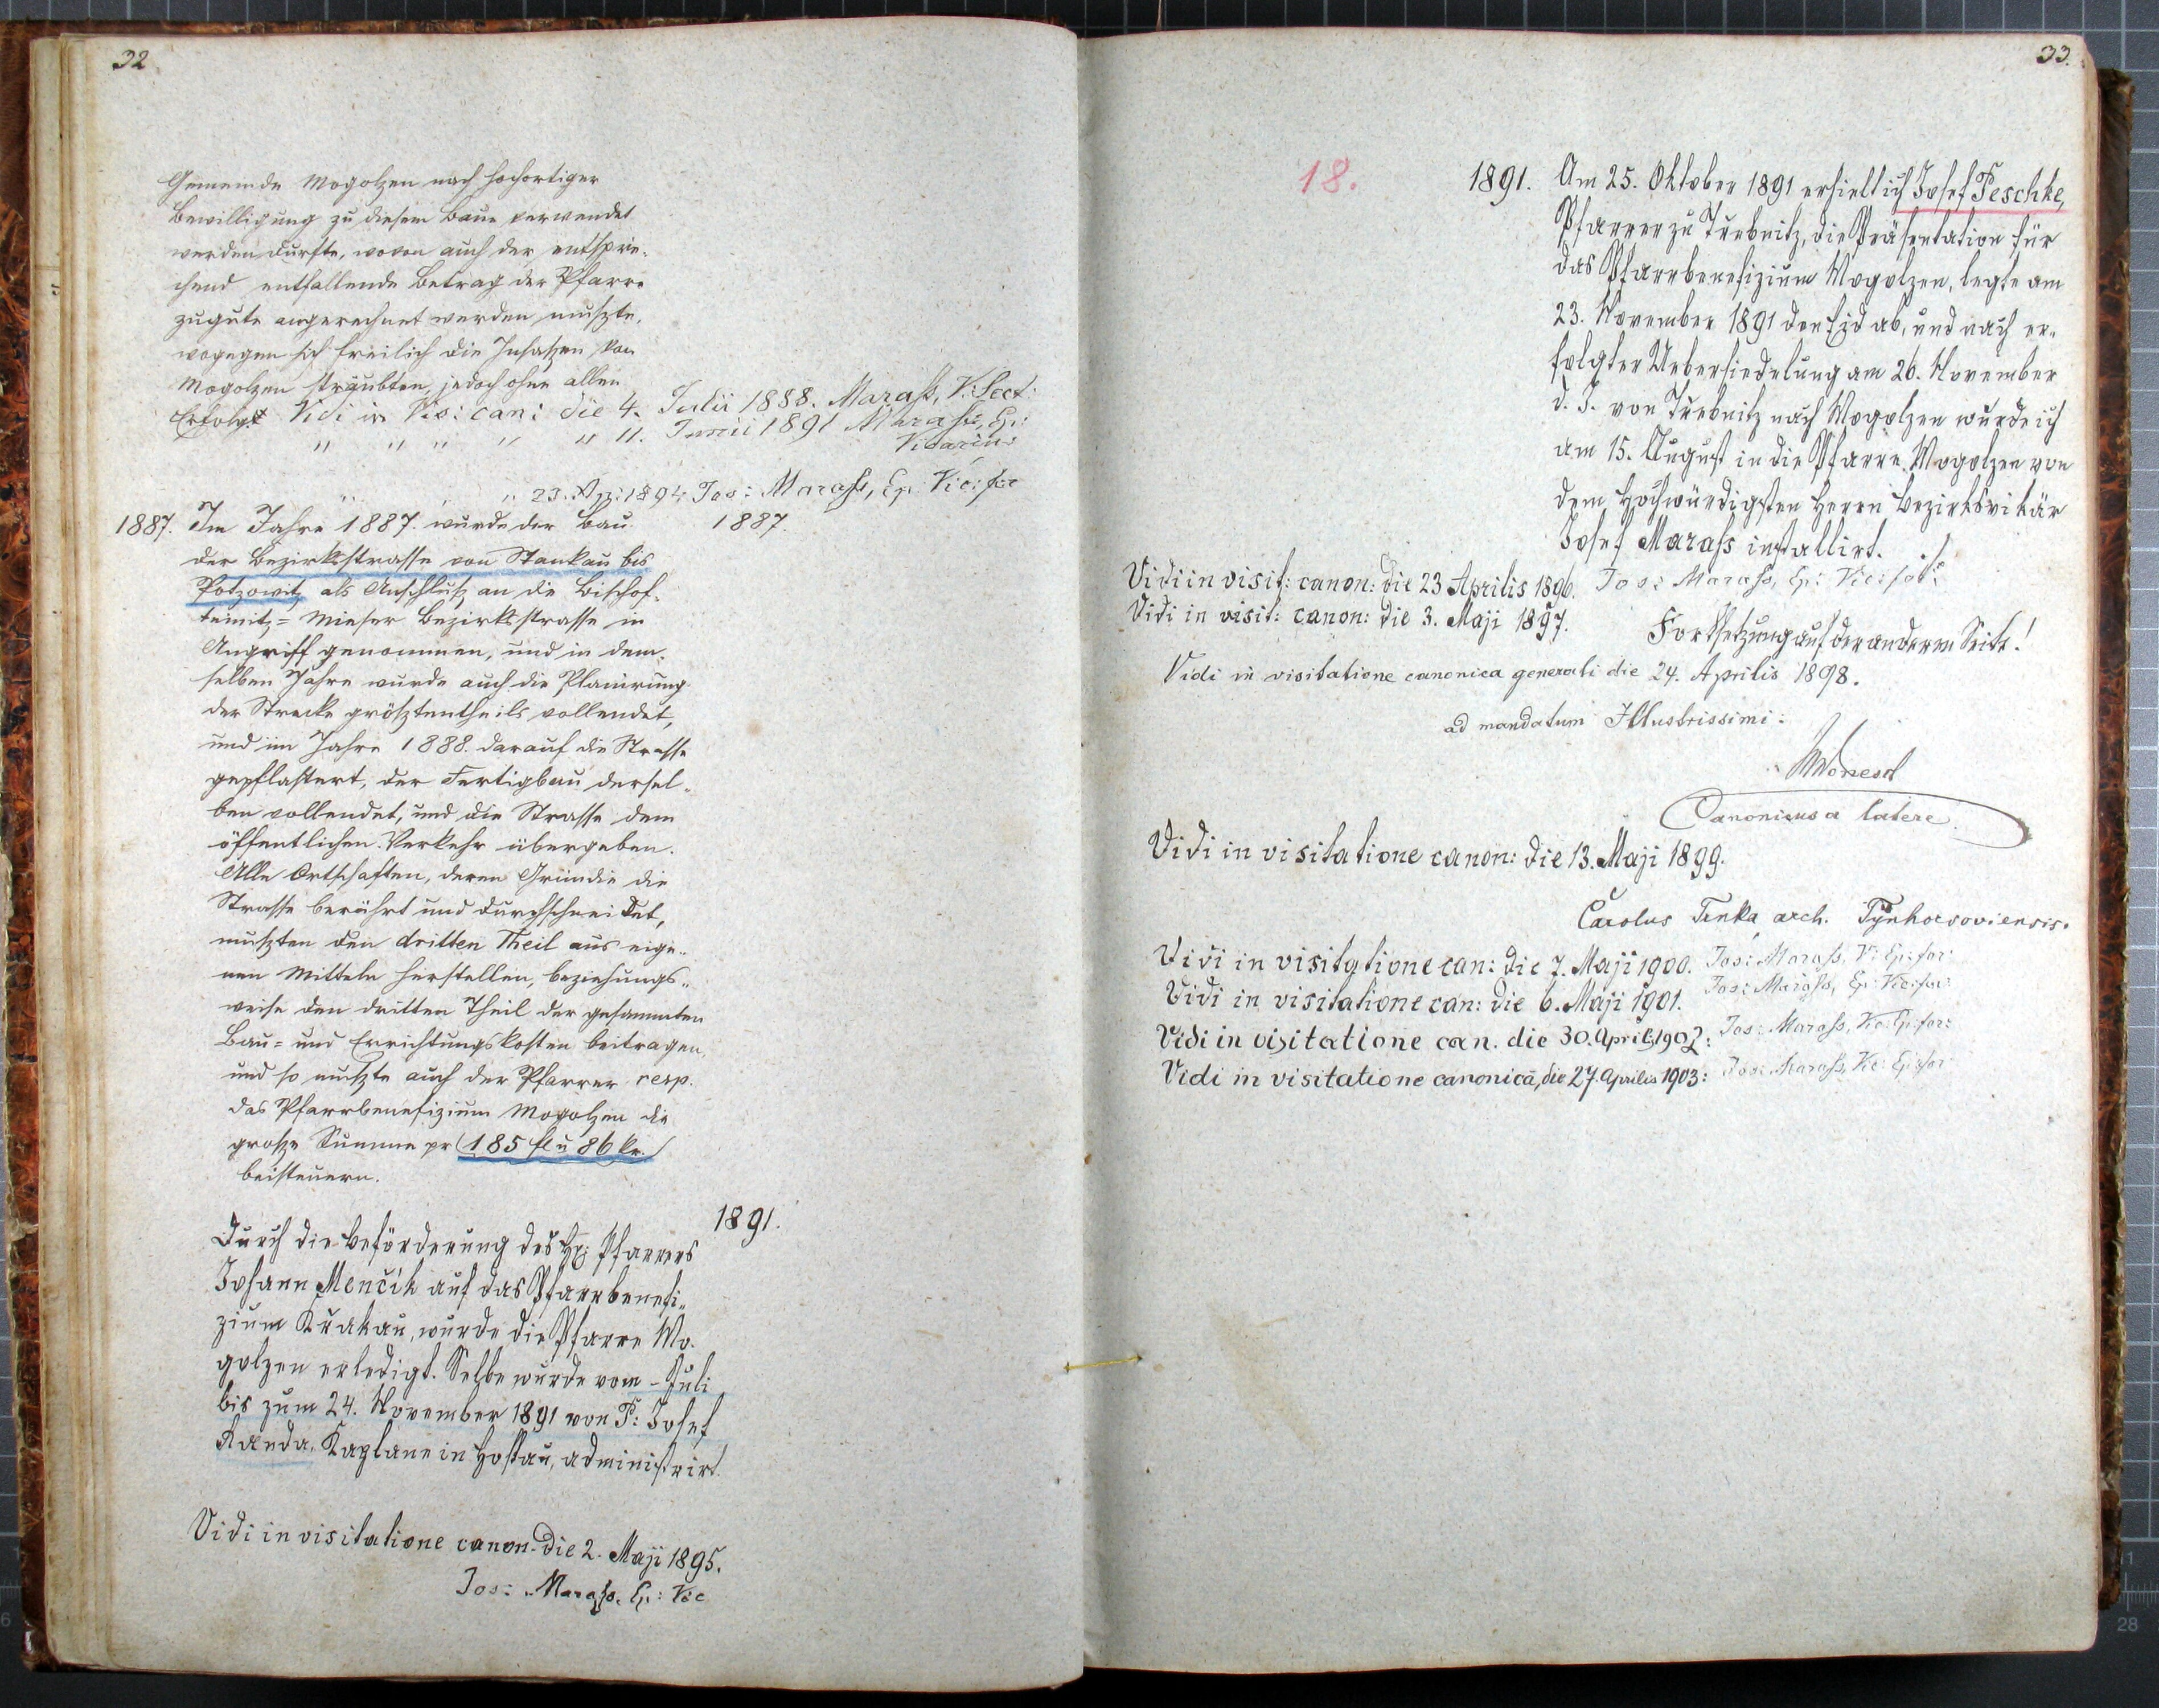 32
Gemeinde Mogolzen nach hochortiger
Bewilligung zu diesem Baue verwendet
werden durfte, wovon auch der entspre-
chend entfallende Betrag der Pfarre
zugute angerechnet werden mußte,
wogegen sich freilich die Insassen von
Mogolzen sträubten, jedoch ohne allen
Erfolg. Vidi in Vis: can: die 4. Julii 1888. Marass, V. Sect:
" " " " " 11. Junii 1891 Marass, Ep:
Vicarius
" " " 23. Apr: 1894 Jos: Marass, Ep. Vic: for
1887. Im Jahre 1887. wurde der Bau 1887.
der Bezirksstrasse von Stankau bis
Potzowitz als Anschluß an die Bischof-
teinitz=Mieser Bezirksstrasse in
Angriff genommen, und in dem-
selben Jahre wurde auch die Planirung
der Strecke größtentheils vollendet,
und im Jahre 1888. darauf die Strasse
gepflastert, der Fertigbau dersel-
ben vollendet, und die Strasse dem
öffentlichen Verkehr übergeben.
Alle Ortschaften, deren Gründe die
Strasse berührt und durchschneidet,
mußten den dritten Theil aus eige-
nen Mitteln herstellen, beziehungs-
weise den dritten Theil der gesammten
Bau- und Errichtungskosten beitragen,
und so mußte auch der Pfarrer resp.
das Pfarrbenefizium Mogolzen die
große Summe pr (185 fl u 86 kr.)
beisteuern.
1891.
Durch die Beförderung des H: Pfarrers
Johann Menčík auf das Pfarrbenefi-
zium Krakau, wurde die Pfarre Mo-
golzen erledigt. Selbe wurde vom - Juli
bis zum 24. November 1891 von P: Josef
Randa, Kaplane in Hostau, administrirt.
Vidi in visitatione canon. die 2. Maji 1895.
Jos: Marass, Ep: Vic
33.
18.
1891. Am 25. Oktober 1891 erhielt ich Josef Peschke,
Pfarrer zu Trebnitz, die Präsentation für
das Pfarrbenefizium Mogolzen, legte am
23. November 1891 den Eid ab, und nach er-
folgter Uebersiedelung am 26. November
d. J. von Trebnitz nach Mogolzen wurde ich
am 15. August in die Pfarre Mogolzen von
dem hochwürdigsten Herrn Bezirksvikär
Josef Marass installirt. ./.
Vidi in visit: canon: die 23 Aprilis 1896. Jos: Marass, Ep: Vic: for:
Vidi in visit: canon: die 3. Maji 1897. Fortsetzung auf der anderen Seite!
Vidi in visitatione canonica generali die 24. Aprilis 1898.
ad mandatum Illustrissimi:
Canonicus a latere.
Vidi in visitatione canon: die 13. Maji 1899.
Carolus Tenka, arch. Týnhorsoviensis.
Vidi in visitatione can: die 7. Maji 1900. Jos: Marass, V: Ep: for:
Vidi in visitatione can: die 6. Maji 1901. Jos: Marass, Ep: Vic: for:
Vidi in visitatione can. die 30. April 1902: Jos: Marass, Vic: Ep: for:
Vidi in visitatione canonicā, die 27. Aprilis 1903: Jos: Marass, Vic: Ep: for